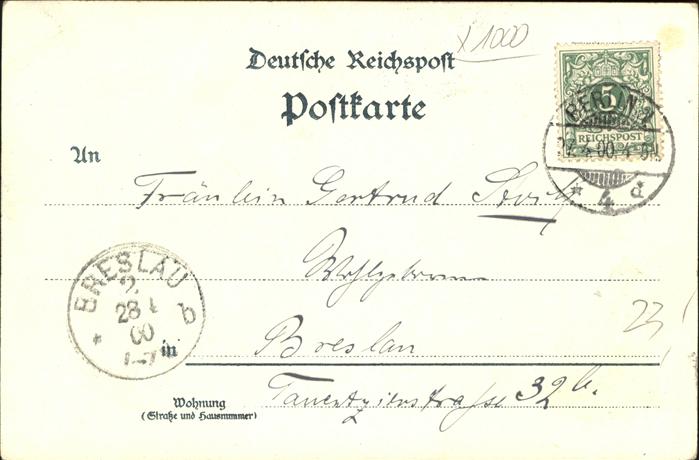 x 1000
Deutsche Reichspost
Postkarte
5
REICHSPOST
BERLIN
00
* 4 d
An
Fräulein Gertrud
Wohlgeboren
BRESLAU
2.
28 4
00
* b
in Breslau
23
Wohnung
(Straße und Hausnummer)
Tauentzienstrasse 32 b.